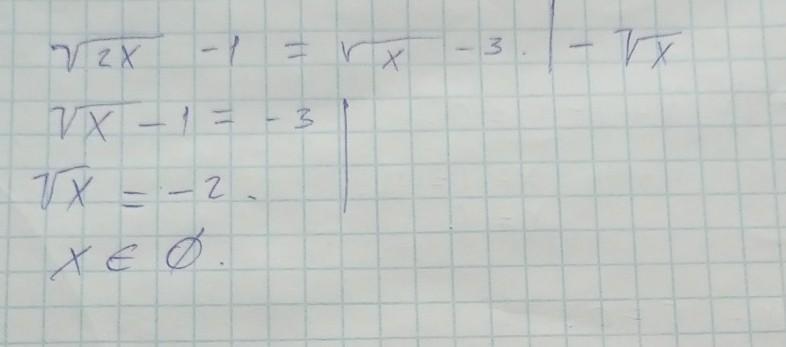 √2x - 1 = √x - 3. | - √x
√x - 1 = - 3 |
√x = - 2.
x ∈ Ø.